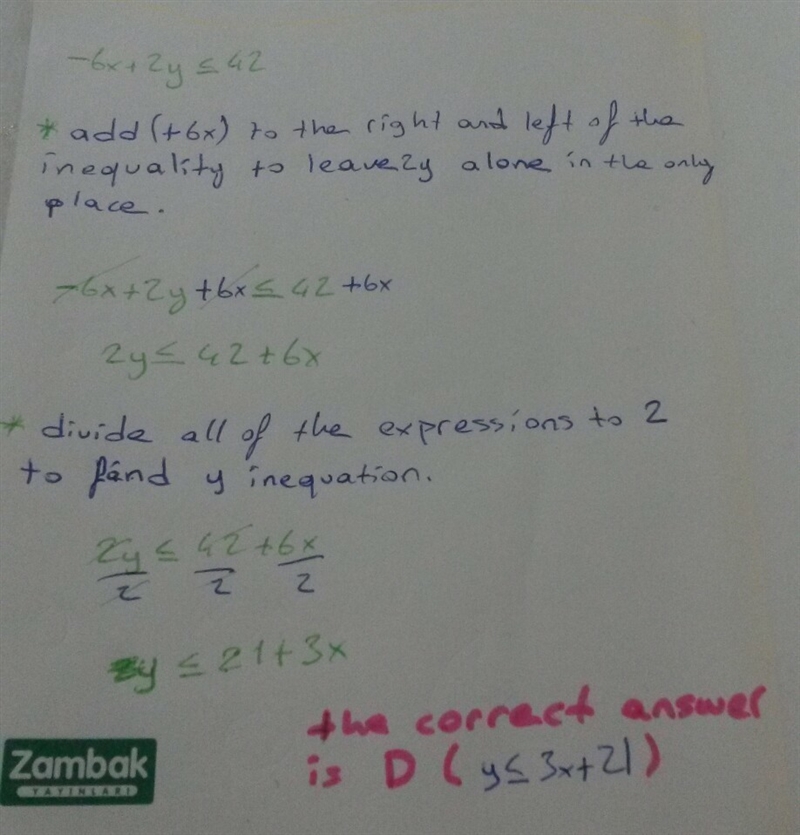 -6x+2y ≤ 42
* add (+6x) to the right and left of the
inequality to leave 2y alone in the only
place.
-6x+2y+6x ≤ 42 +6x
2y ≤ 42+6x
* divide all of the expressions to 2
to find y inequation.
2y/2 ≤ 42/2 + 6x/2
y ≤ 21+3x
the correct answer
is D ( y ≤ 3x+21)
Zambak
YAYINLARI